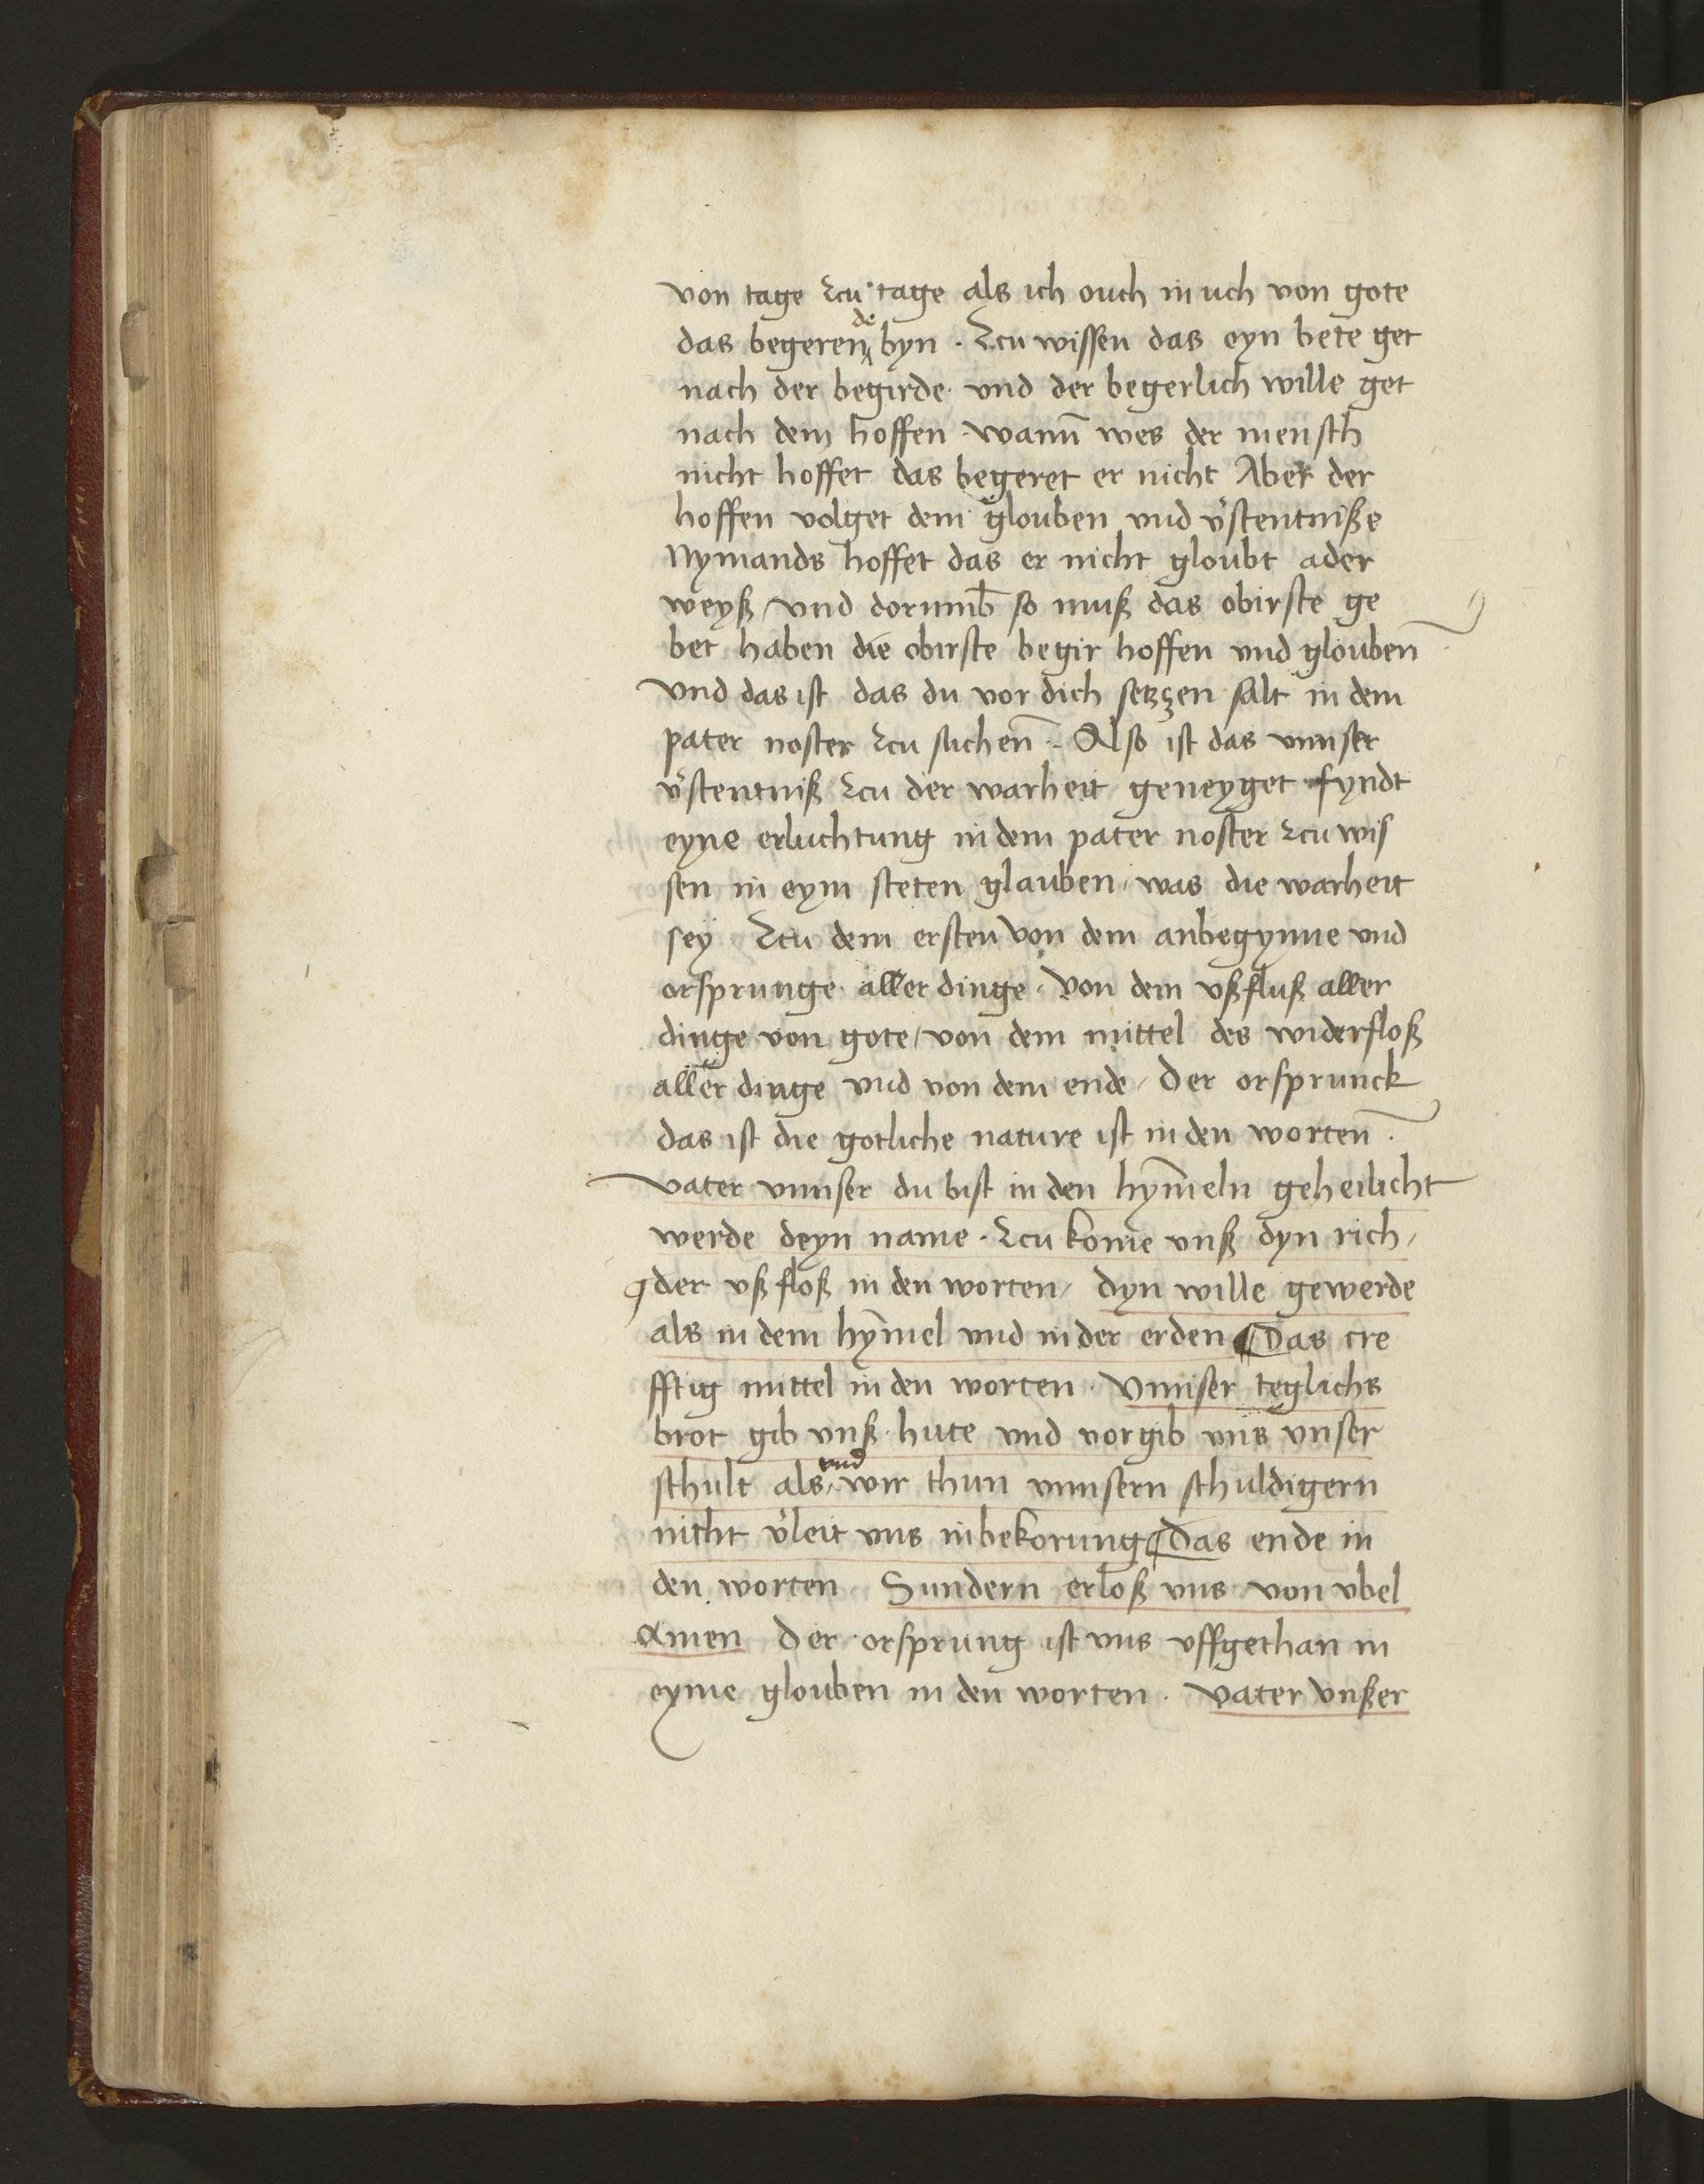 von tage zcu tage als ich ouch in uch von gote
das begerende byn . Zcu wissen das eyn bete get
nach der begirde und der begerlich wille get
nach dem hoffen . wann̄ wes der mensch
nicht hoffet das begeret er nicht Aber der
hoffen volget dem glouben und v̓stentniße
Nymands hoffet das er nicht gloubt ader
weyß / und dorumb̄ so muß das obirste ge
bet haben die obirste begir hoffen und glouben̄
Und das ist das du vor dich setzzen salt in dem
pater noster zcu suchen̄ . Also ist das unnser
v̓stentniß zcu der warheit geneyget fyndt
eyne erluchtung in dem pater noster zcu wis
sen in eym steten glauben / was die warheit
sey Zcu dem ersten von dem anbegynne und
orsprunge aller dinge . Von dem ußfluß aller
dinge von gote / von dem mittel des widerfloß
aller dinge und von dem ende / Der orsprunck
das ist die gotliche nature ist in den worten̄ .
Vater unnser du bist in den hym̄eln geheilicht
werde deyn name . Zcu kome unß dyn rich /
¶ der ußfloß in den worten / dyn wille gewerde
als in dem hym̄el und in der erden ¶ Das cre
fftig mittel in den worten . Unnser teglichs
brot gib unß hute und vorgib uns unser
schult als und wir thun unnsern schuldigern
nicht v̓leit uns in bekorung ¶ Das ende in
den worten . Sundern erloß uns von ubel
Amen Der orsprung ist uns uffgethan in
eyme glouben in den worten . Vater unßer